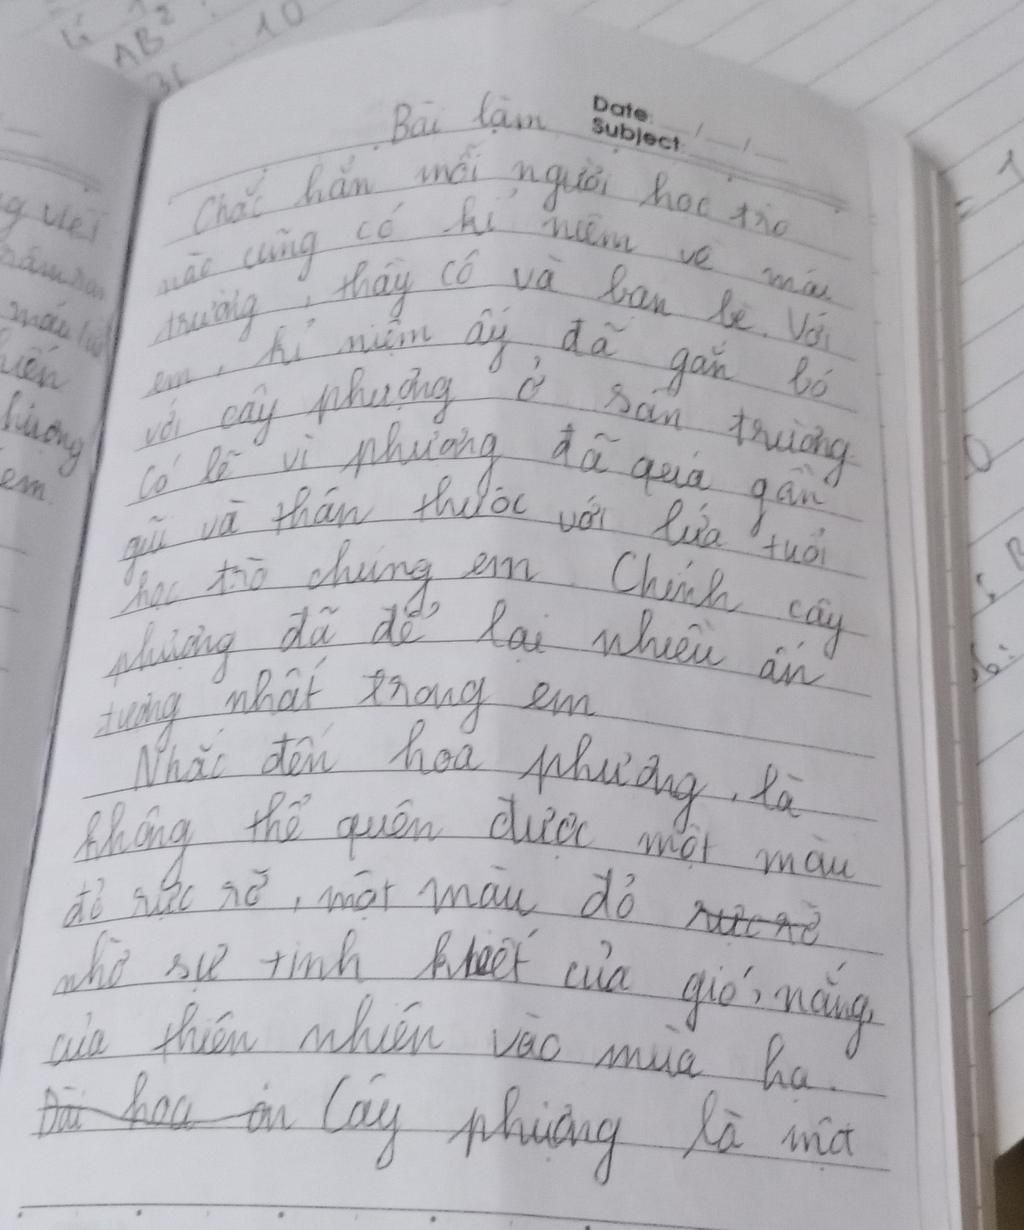 AB²
10
Date: __/__/__
Subject:
Bài làm
Chắc hẳn mỗi người học trò
nào cũng có kỉ niệm về mái
trường, thầy cô và bạn bè. Với
em, kỉ niệm ấy đã gắn bó
với cây phượng ở sân trường.
Có lẽ vì phượng đã quá gần
gũi và thân thuộc với lứa tuổi
học trò chúng em. Chính cây
phượng đã để lại nhiều ấn
tượng nhất trong em
Nhắc đến hoa phượng, là
không thể quên được một màu
đỏ rực rỡ, một màu đỏ rực rỡ
nhờ sự tinh khiết của gió, nắng,
của thiên nhiên vào mùa hạ.
Đài hoa ôn Cây phượng là một
hương
em.